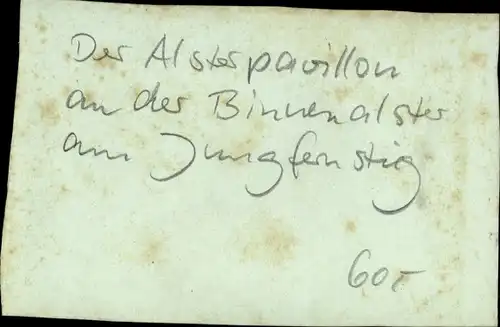 Der Alsterpavillon
an der Binnenalster
am Jungfernstig
60,-